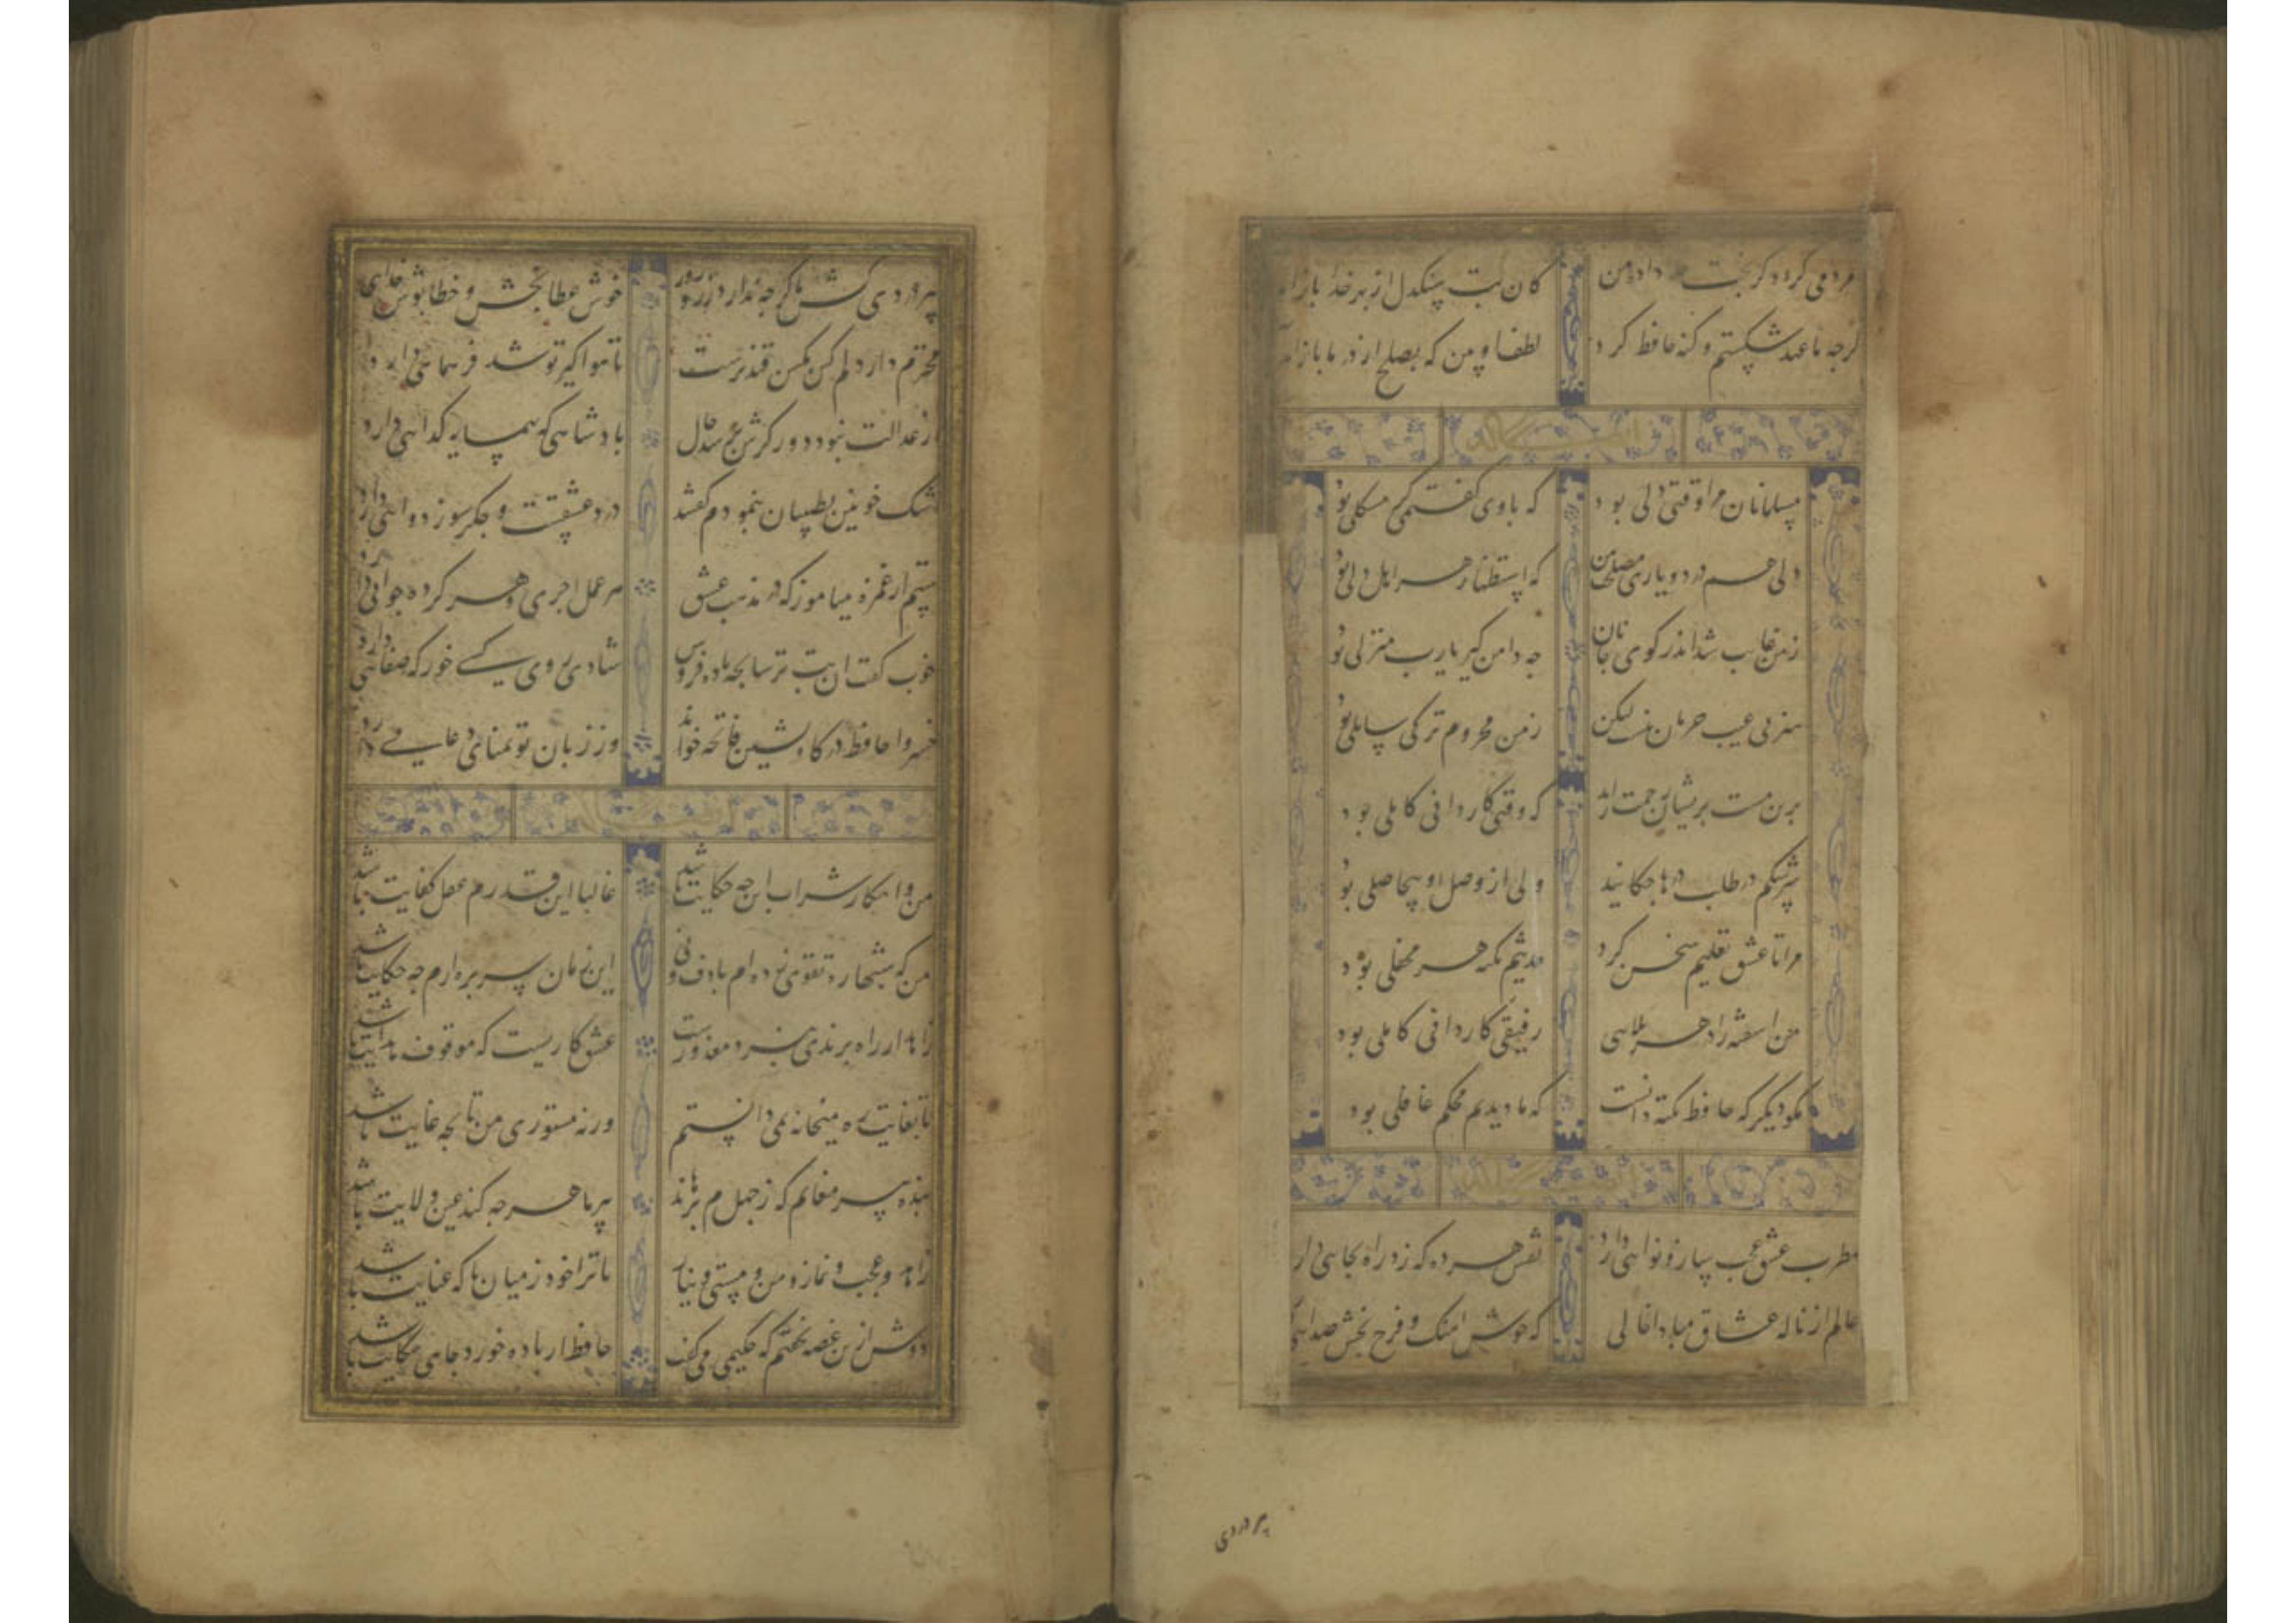 مردمی کرد و کرم بخت داد من کان بت سنکدل از بهر خدا باز آمد
کرجه ما عهد شکستیم و کنه حافظ کرد لطف او بین که بصلح از در ما باز آمد
مسلمانان مرا وقتی دلی بود که با وی کفتمی کر مشکلی بود
دلی همدرد و یاری مصلحت بین که استظهار هر اهل دلی بود
ز من غایب شد اندر کوی جانان جه دامن کیر یارب منزلی بود
هنر بی عیب حرمان نیست لیکن ز من محروم تر کی سایلی بود
برین مست پریشان رحمت ارید که وقتی کاردانی کاملی بود
سرشکم در طلب درها جکانید ولی از وصل او بیحاصلی بود
مرا تا عشق تعلیم سخن کرد حدیثم نکته هر محفلی بود
من اشفته را در هر بلایی رفیقی کاردانی کاملی بود
مکو دیکر که حافظ نکته دانست که ما دیدیم محکم غافلی بود
مطرب عشق عجب ساز و نوایی دارد نقش هر پرده که زد راه بجایی دارد
عالم از ناله عشاق مبادا خالی که خوش اهنک و فرح بخش صدایی
پیر دردی
پیر دردی کش ما کرجه ندارد زر و زور خوش عطا بخش و خطا پوش خدایی دارد
محترم دار دلم کین مکس قند پرست تا هوا کیر تو شد فر همایی دارد
از عدالت نبود دور کرش پرسد حال بادشاهی که بهمسایه کدایی دارد
اشک خونین بطبیبان بنمودم کفتند درد عشقست و جکر سوز دوایی دارد
ستم از غمزه میاموز که در مذهب عشق هر عمل اجری و هر کرده جزایی دارد
خوب کفت ان بت ترسا بجه باده فروش شادی روی کسی خور که صفایی دارد
خسروا حافظ درکاه نشین فاتحه خواند وز زبان تو تمنای دعایی دارد
من و انکار شراب این جه حکایت باشد غالبا این قدرم عقل کفایت باشد
من که شبها ره تقوی زده ام با دف و نی این زمان سر بره ارم جه حکایت باشد
زاهد ار راه برندی نبرد معذورست عشق کاریست که موقوف هدایت باشد
تا بغایت ره میخانه نمی دانستم ورنه مستوری من تا بجه غایت باشد
بنده پیر مغانم که ز جهلم برهاند پیر ما هرجه کند عین ولایت باشد
زاهد و عجب و نماز و من و مستی و نیاز تا ترا خود ز میان با که عنایت باشد
دوش ازین غصه نخفتم که حکیمی می کفت حافظ ار باده خورد جای شکایت باشد